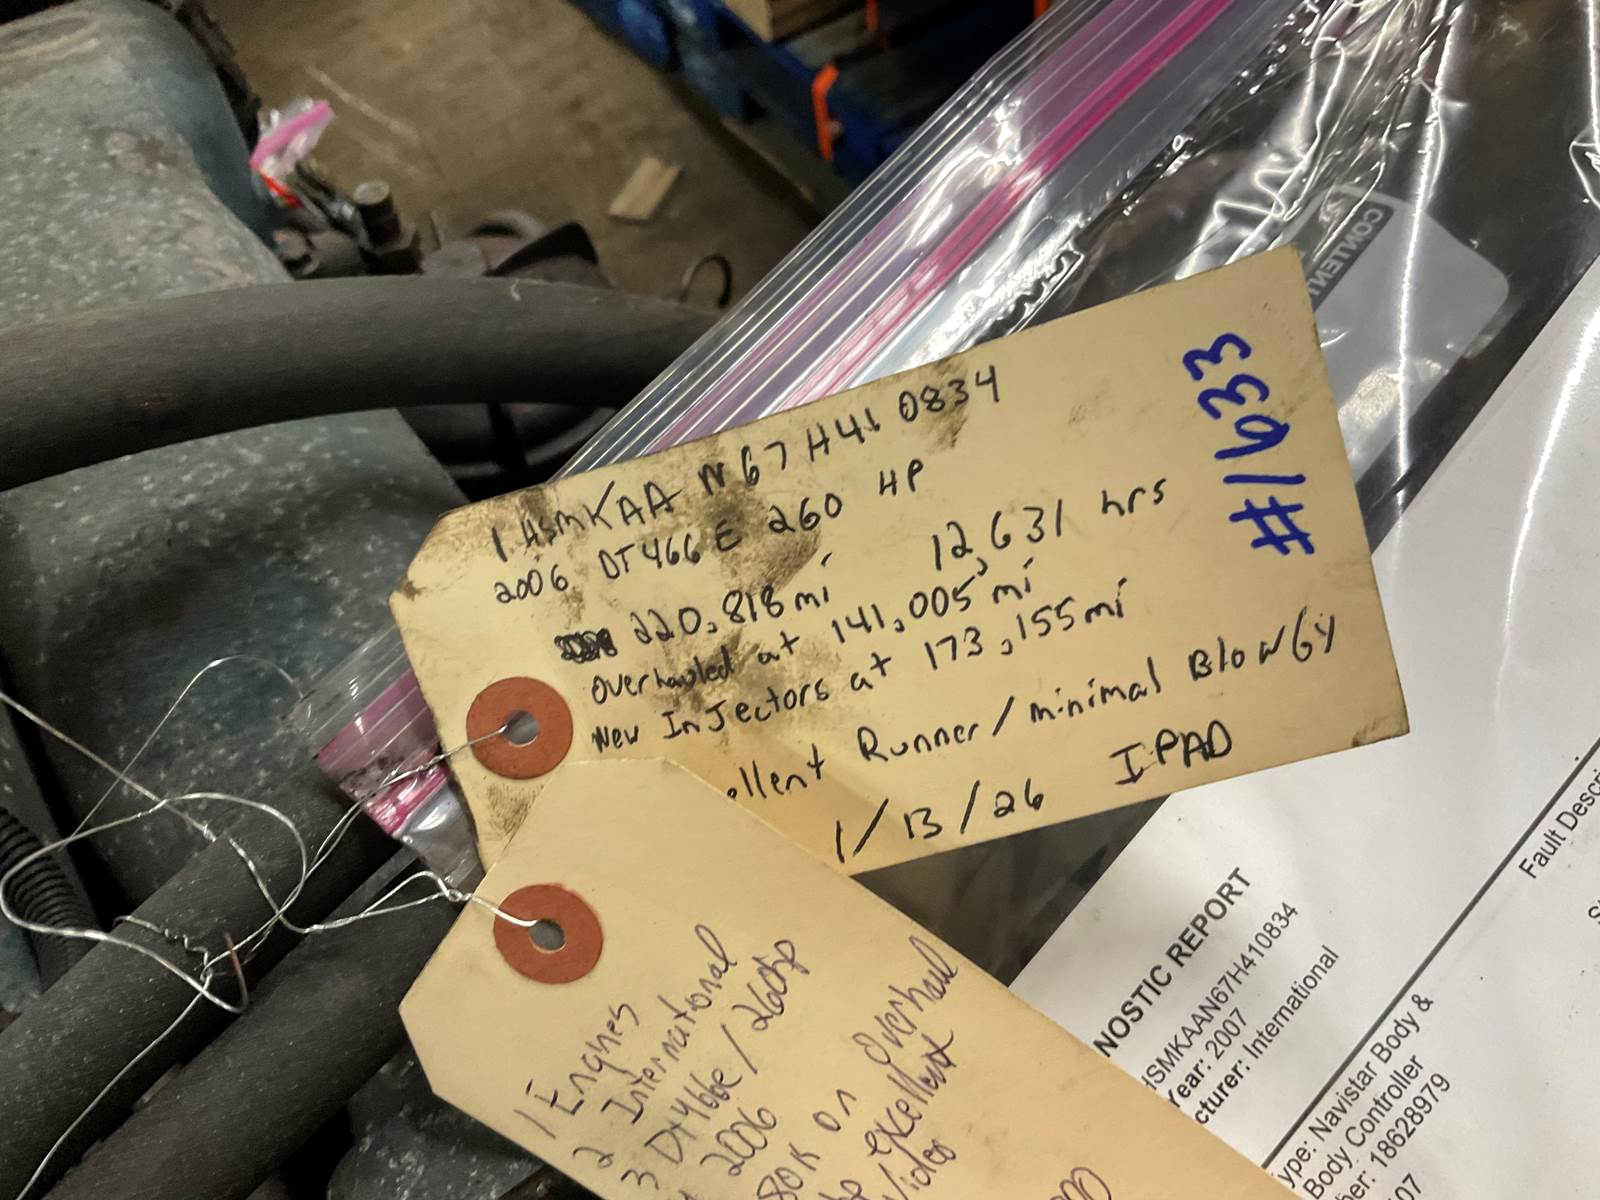 1HSMKAAN67H410834
2006 DT466E 260 HP
220,818mi 12,631 hrs
overhauled at 141,005 mi
New Injectors at 173,155mi
ellent Runner/minimal BlowGy
1/13/26 IPAD
#1633
1 Engines
2 International
3 DT466e/260hp
2006
80K on Overhaul
excellent
Video
NOSTIC REPORT
HSMKAAN67H410834
Year: 2007
cturer: International
ype: Navistar Body &
Body Controller
ber: 18628979
07
Fault Descri
CONTENT